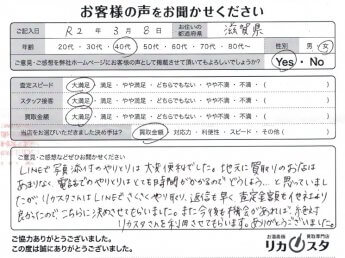 お客様の声をお聞かせください
ご記入日 R2年3月8日 お住いの都道府県 滋賀県
年齢 20代・30代・40代・50代・60代・70代・80代〜 性別 男・女
ご意見・ご感想を弊社ホームページにお客様の声として掲載させて頂いてもよろしいでしょうか? Yes・No
査定スピード 大満足・満足・やや満足・どちらでもない・やや不満・不満・( )
スタッフ接客 大満足・満足・やや満足・どちらでもない・やや不満・不満・( )
買取金額 大満足・満足・やや満足・どちらでもない・やや不満・不満・( )
当店をお選びいただきました決め手は? 買取金額・対応力・利便性・スピード・その他( )
ご意見・ご感想などぜひお聞かせください
LINEで写真添付のやりとりは大変便利でした。地元に買取りのお店は
あまりなく、電話でのやりとりはとても時間がかかるのでどうしよう…と思っていまし
たが、リカスタさんはLINEでさくさくやり取り、返信も早く査定金額も他社より
良かったので、こちらに決めさせてもらいました。また今後も機会があれば、
リカスタさんを利用させてもらいます。ありがとうございました。
ご協力ありがとうございました。
この度は誠にありがとうございました。
お酒高価買取専門店
リカスタ